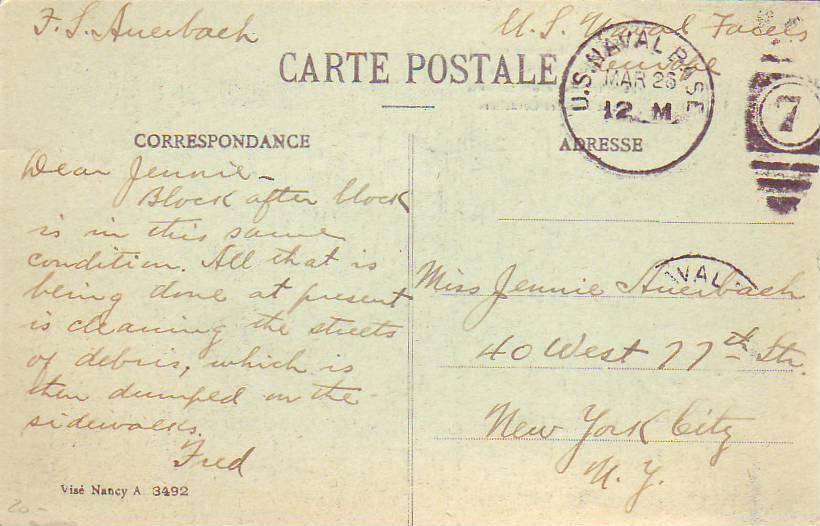 F. S. Auerbach
U. S. Naval Forces
Europe
CARTE POSTALE
U.S. NAVAL BASE
MAR 26
12 M
7
CORRESPONDANCE
Dear Jennie –
Block after block
is in this same
condition. All that is
being done at present
is cleaning the streets
of debris, which is
then dumped on the
sidewalks.
Fred
Visé Nancy A 3492
ADRESSE
NAVAL
Miss Jennie Auerbach
40 West 77th Str.
New York City
N. Y.
20-